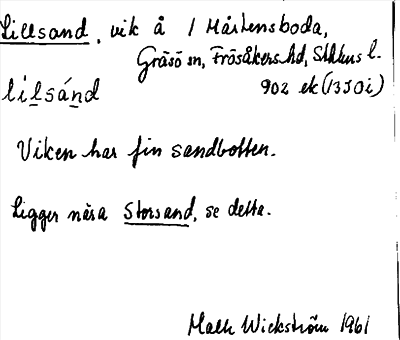 Lillsand, vik å 1 Mårtensboda,
Gräsö sn, Frösåkers hd, Sthlms l.
lílsánd 902 ek (13J0i)
Viken har fin sandbotten.
Ligger nära Storsand, se detta.
Wickström 1961